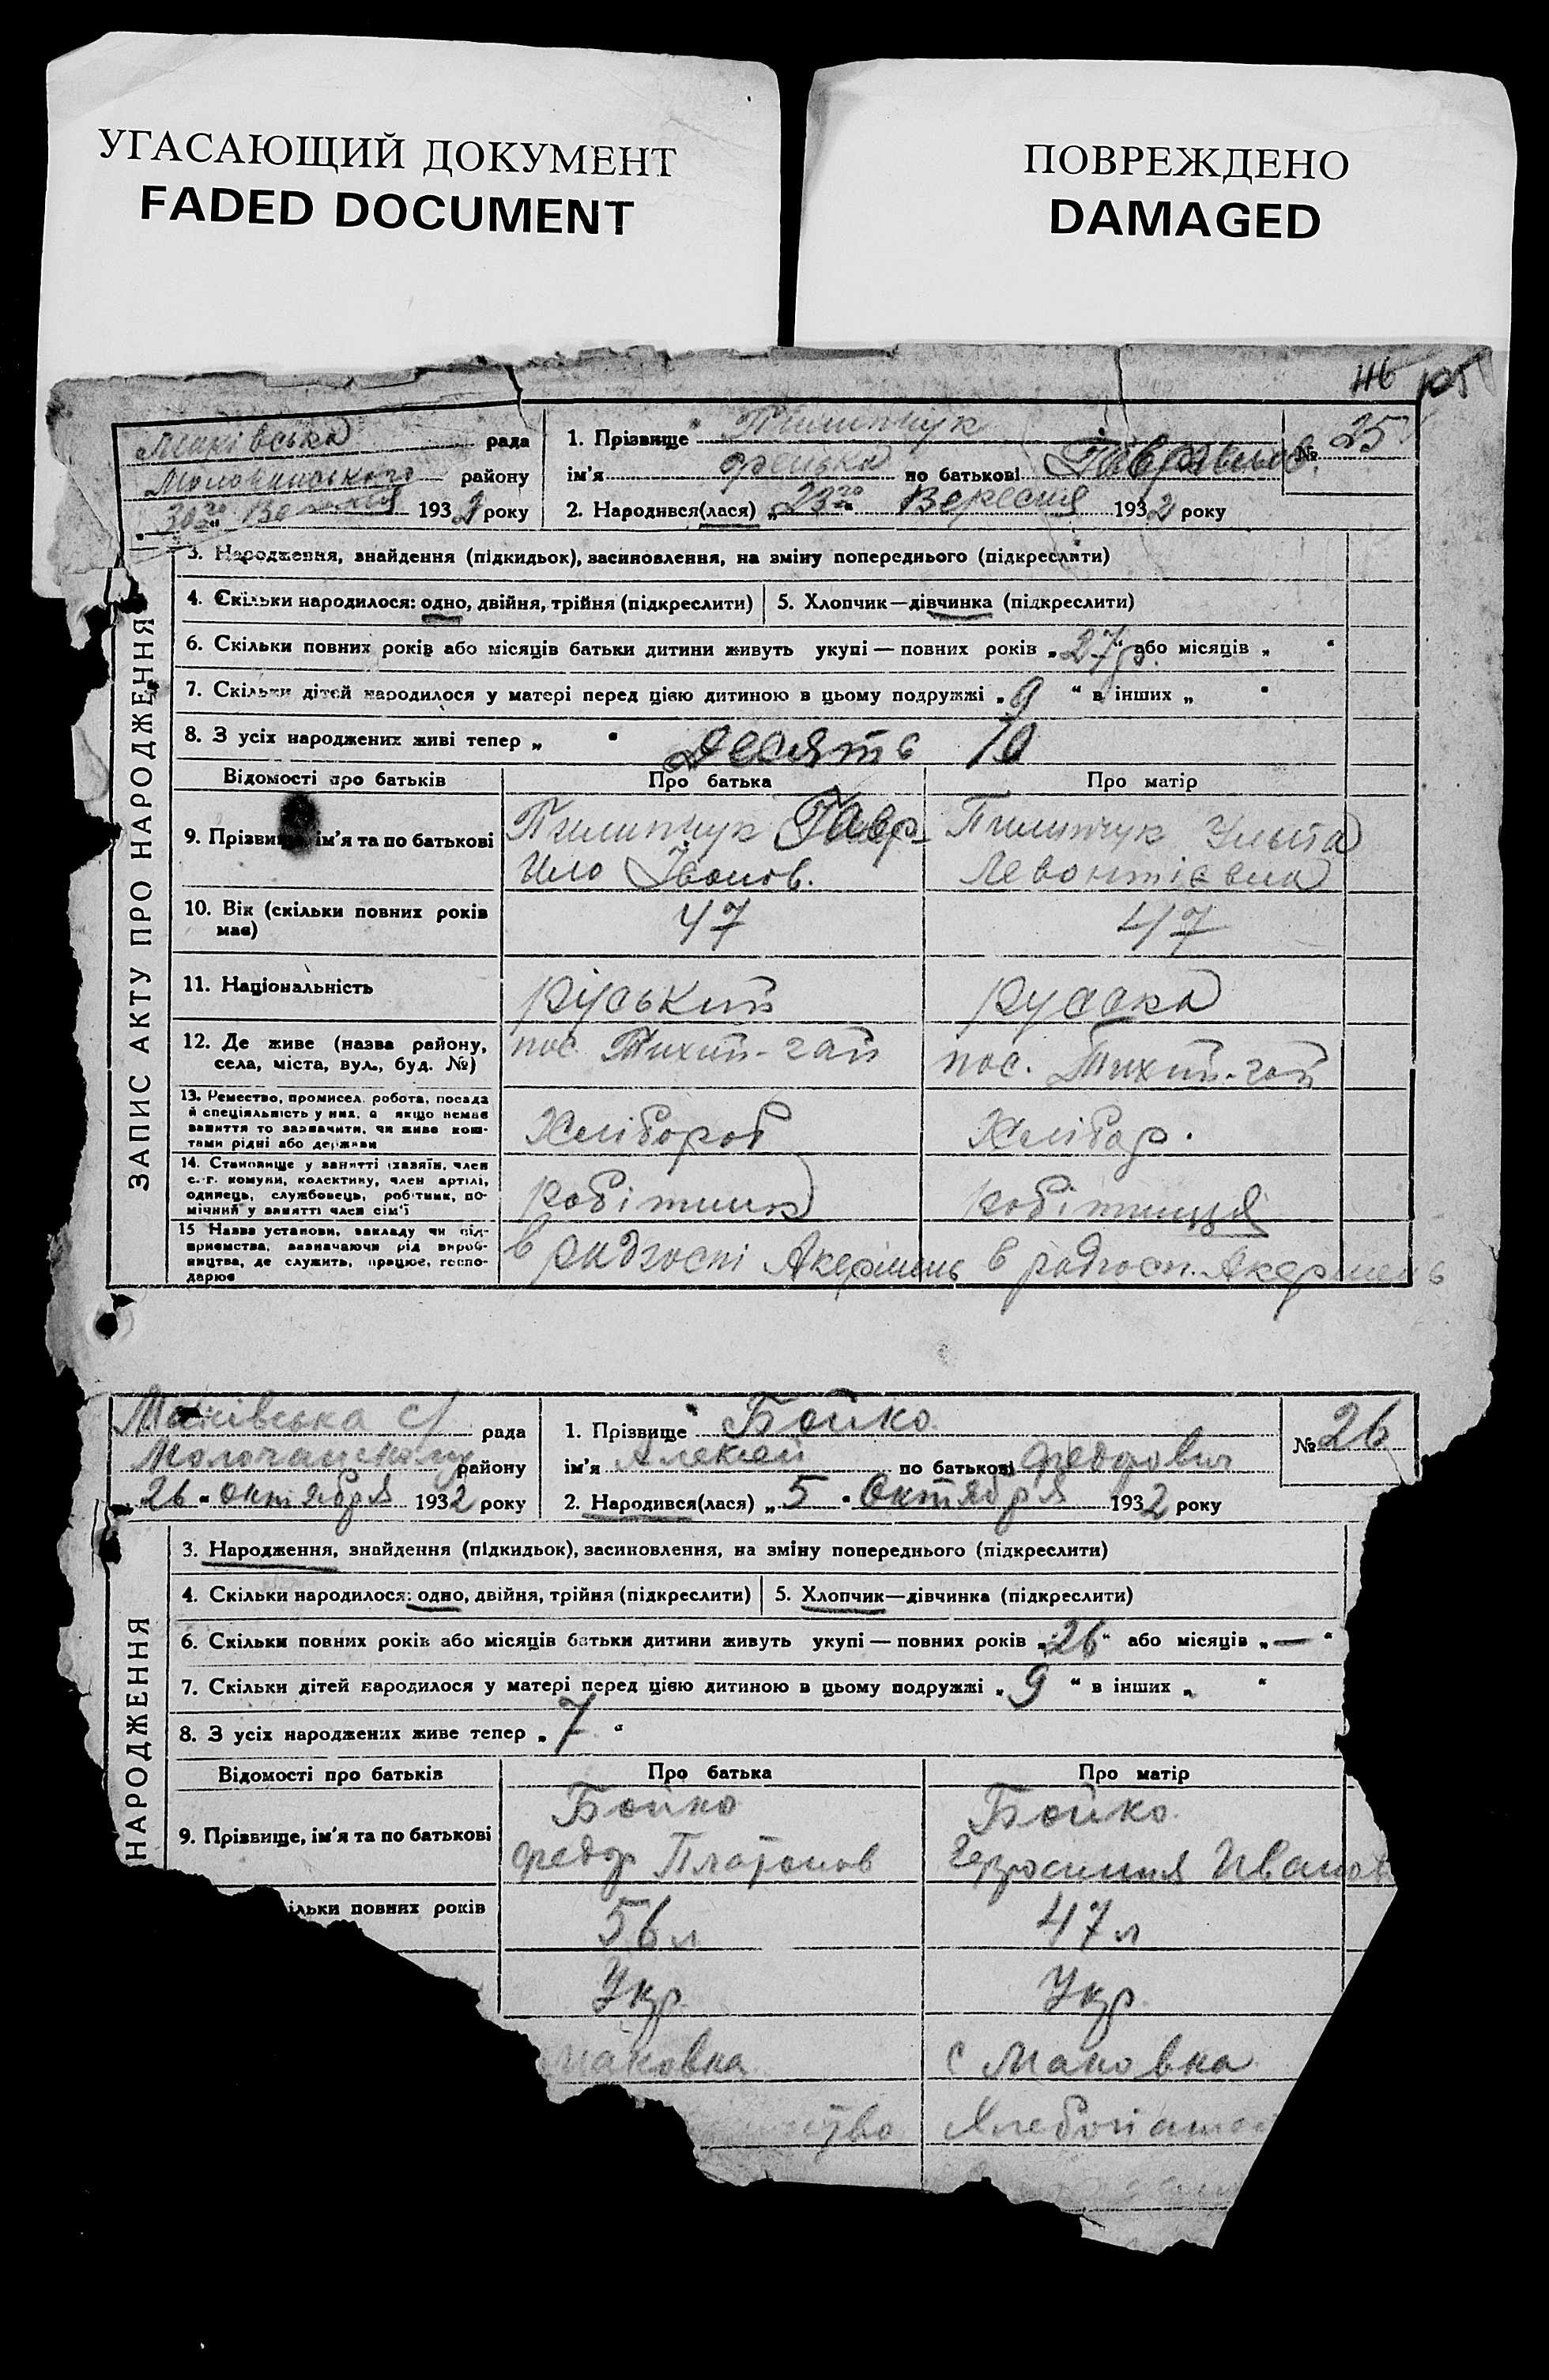 УГАСАЮЩИЙ ДОКУМЕНТ
FADED DOCUMENT
ПОВРЕЖДЕНО
DAMAGED
46 105
Маківська рада
Молочанського району
30го Вересня 1932 року
1. Прізвище Пилипчук
ім'я по батькові Гавриловн.
2. Народився(лася) „23го“ Вересня 1932 року
№ 25
ЗАПИС АКТУ ПРО НАРОДЖЕННЯ
3. Народження, знайдення (підкидьок), засиновлення, на зміну попереднього (підкреслити)
4. Скільки народилося: одно, двійня, трійня (підкреслити)
5. Хлопчик—дівчинка (підкреслити)
6. Скільки повних років або місяців батьки дитини живуть укупі — повних років „27р.“ або місяців „ “
7. Скільки дітей народилося у матері перед цією дитиною в цьому подружжі „9“ в інших „ “
8. З усіх народжених живі тепер „ “ десять 10
Відомості про батьків
Про батька
Про матір
9. Прізвище ім'я та по батькові
Пилипчук Гавр-
ило Іванов.
Пилипчук Улыта
Левонтієвна
10. Вік (скільки повних років
має)
47
47
11. Національність
руський
русска
12. Де живе (назва району,
села, міста, вул., буд. №)
пос. Тихий-гай
пос. Тихий-гай
13. Ремество, промисел, робота, посада
й спеціяльність у них, а якщо немає
заняття то зазначити, чи живе кош-
тами рідні або держави
Хлібороб
Хлібор.
14. Становище у занятті (хазяїн, член
с.-г. комуни, колективу, член артілі,
одинець, службовець, робітник, по-
мічний у занятті член сім'ї
робітник
робітниця
15 Назва установи, закладу чи під-
приємства, зазначаючи рід вироб-
ництва, де служить, працює, госпо-
дарює
в радгоспі Акермень
в радгосп. Акермень
Маківська с/ рада
Молочанському району
„26“ октября 1932 року
1. Прізвище Бойко
ім'я Алексей по батькові Федорович
2. Народився(лася) „5“ Октября 1932 року
№ 26
НАРОДЖЕННЯ
3. Народження, знайдення (підкидьок), засиновлення, на зміну попереднього (підкреслити)
4. Скільки народилося: одно, двійня, трійня (підкреслити)
5. Хлопчик—дівчинка (підкреслити)
6. Скільки повних років або місяців батьки дитини живуть укупі — повних років „26“ або місяців „—“
7. Скільки дітей народилося у матері перед цією дитиною в цьому подружжі „9“ в інших „ “
8. З усіх народжених живе тепер „7“
Відомості про батьків
Про батька
Про матір
9. Прізвище, ім'я та по батькові
Бойко
Федор Платонов
Бойко
Иванов
ільки повних років
56 л
47 л
Укр
Укр.
маковка
с Маковка